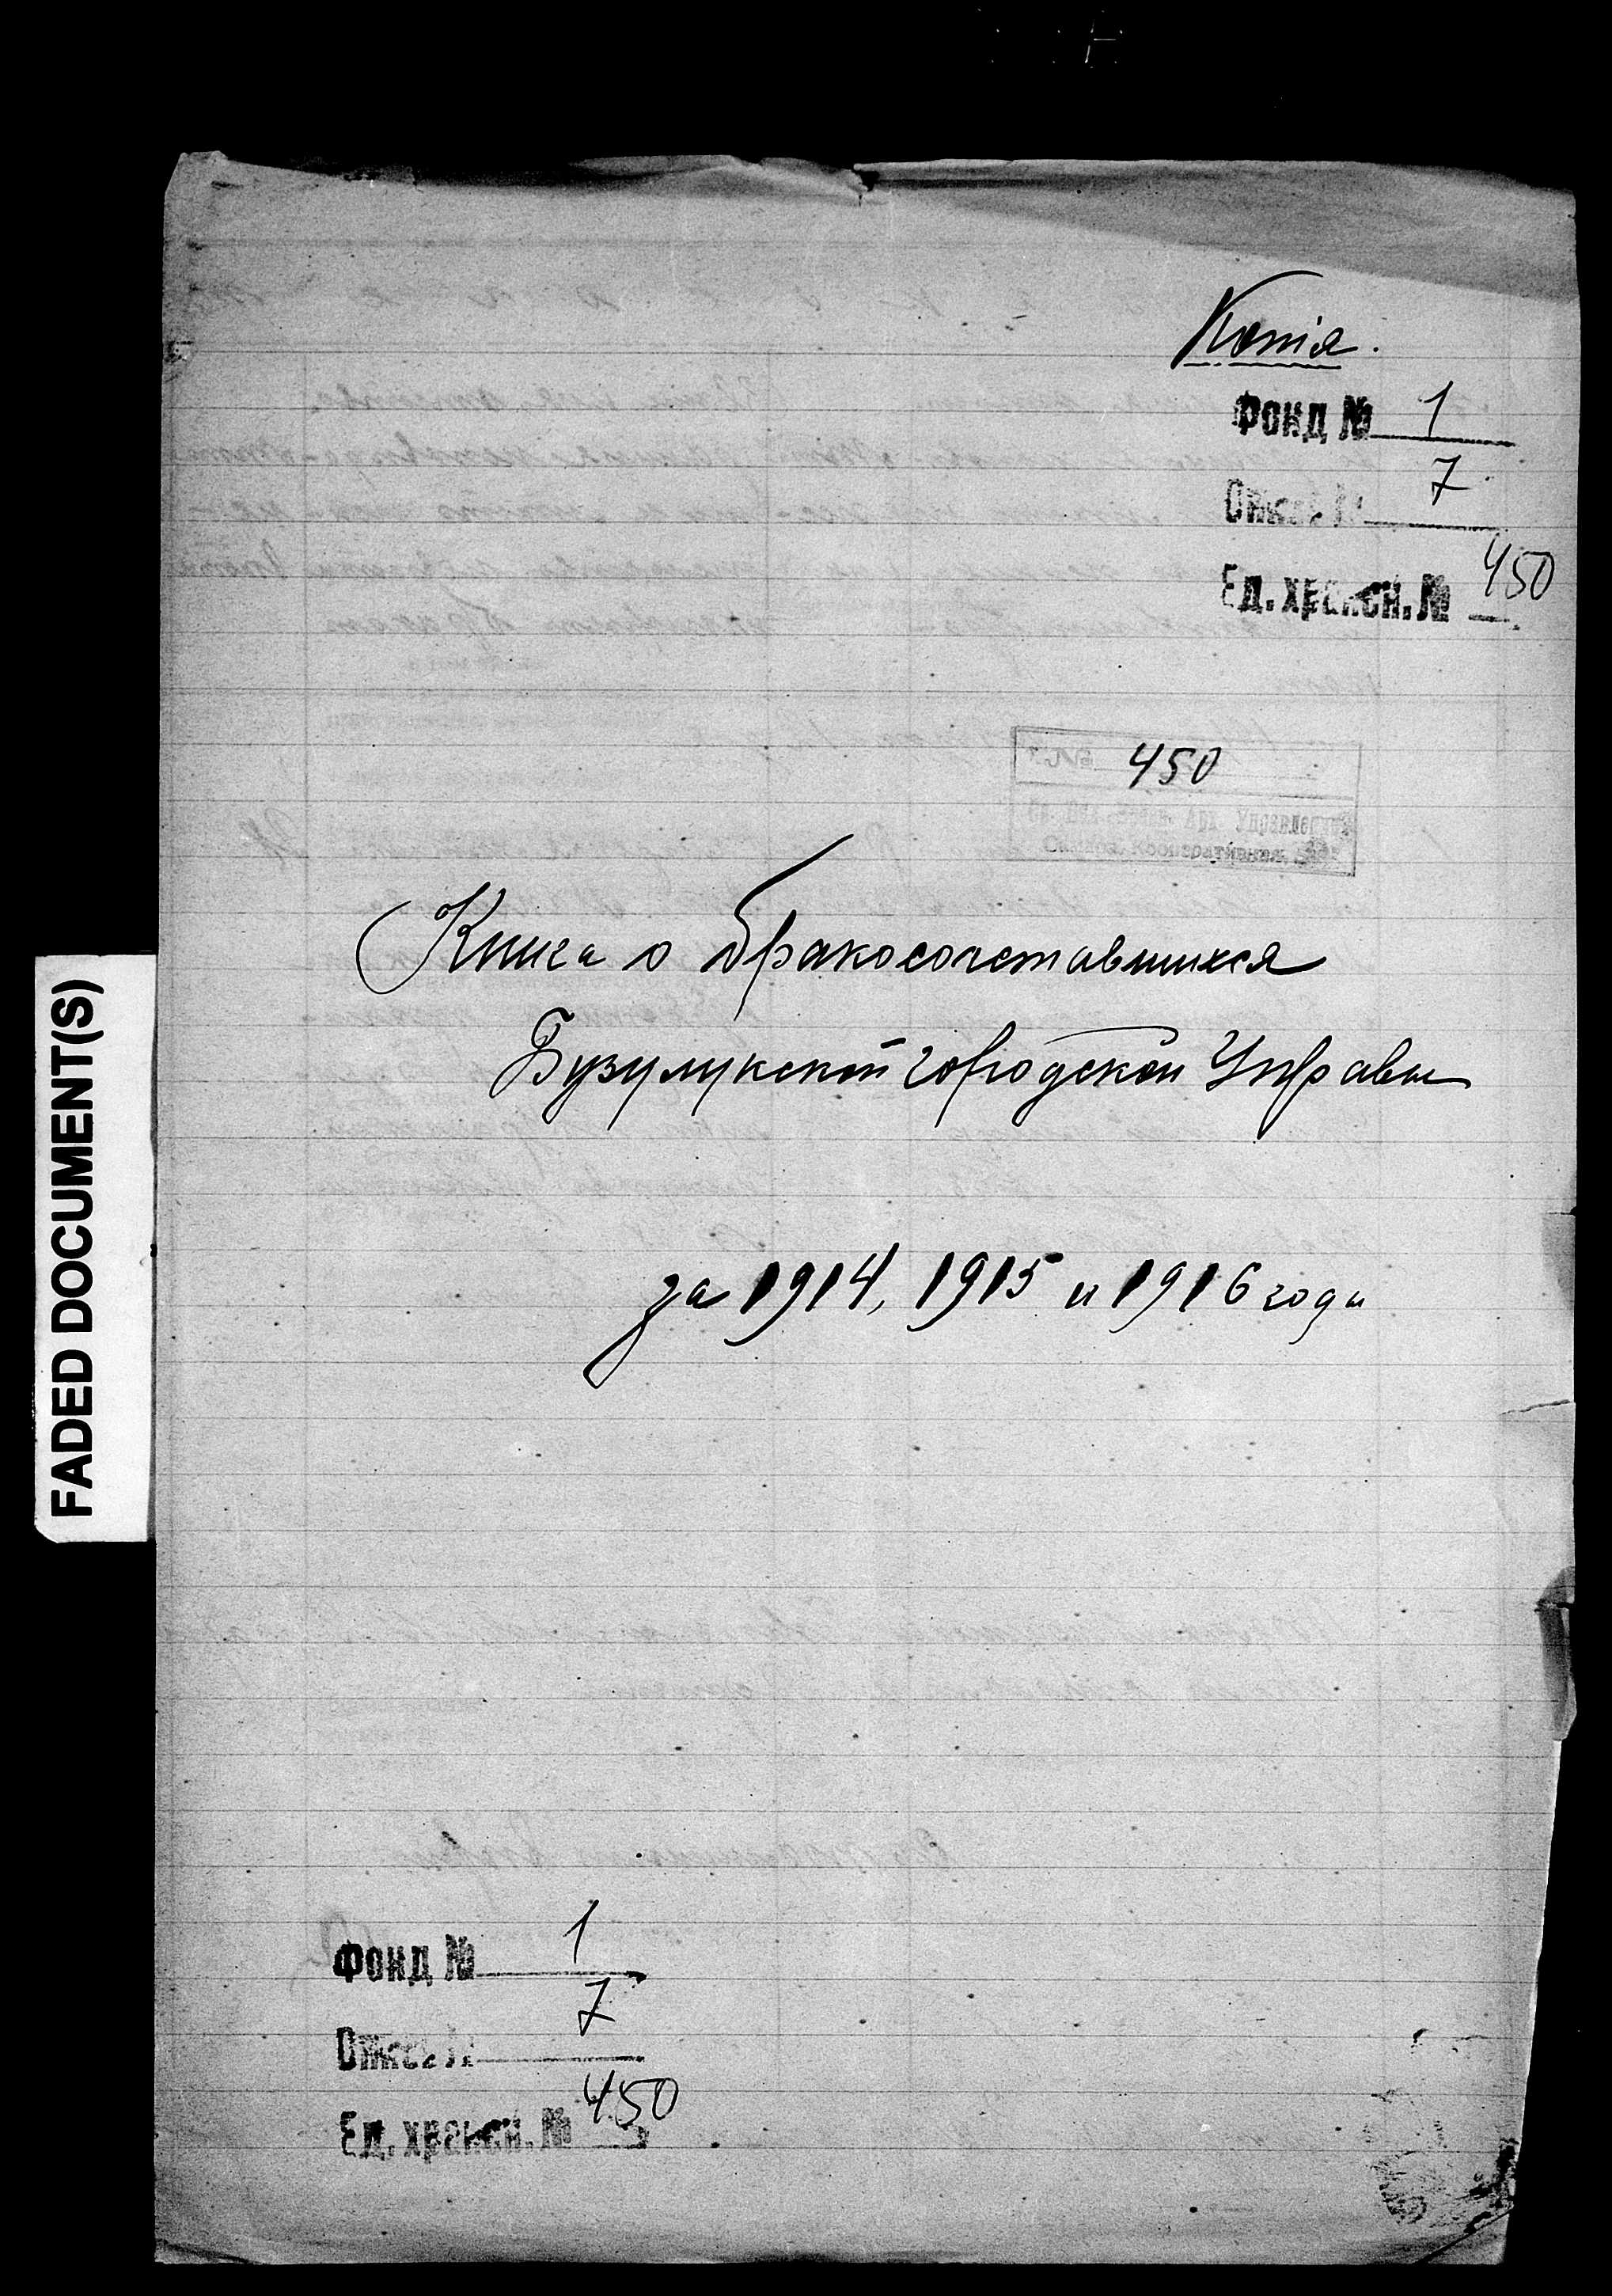 Копія.
Фонд № 1
Опись № 7
Ед. хранен. № 450
450
Арх. Управление
Книга о бракосочетавшихся
Бузулукской городской Управы
за 1914, 1915 и 1916 годы
FADED DOCUMENT(S)
Фонд № 1
Опись № 7
Ед. хранен. № 450